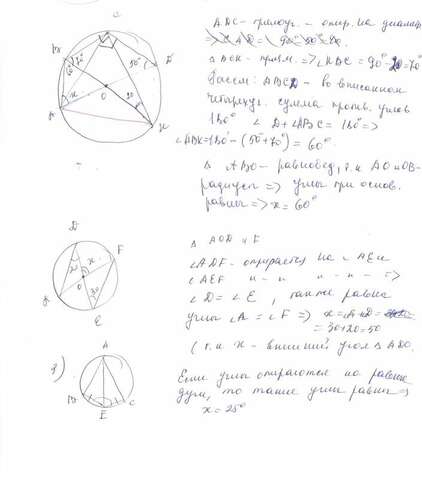 C
B
D
A
K
O
x
60°
70°
50°
20
ADC - прямоуг. - опир. на диаметр
=> ∠CAD = 90°-50°=40.
Δ BCK - прям. => ∠KBC = 90°-20=70°
Рассм: ABCD - во вписанном
четырехуг. сумма против. углов
180° ∠D+∠ABC = 180° =>
∠ABK=180°-(50°+70°) = 60°.
Δ ABO - равнобед, т.к AO и OB -
радиусы => углы при основ.
равны => x = 60°
D
F
A
E
O
x
20
30
Δ AOD и F
∠ADF - опирается на ∪AE и
∠AEF " - " " - " - ">
∠D = ∠E, также равна
углы ∠A = ∠F => x = ∠A+∠D =
= 30+20=50
(т.к x - внешний угол Δ ADO.
9)
A
B
E
C
Если углы опираются на равные
дуги, то такие углы равны =>
x = 25°